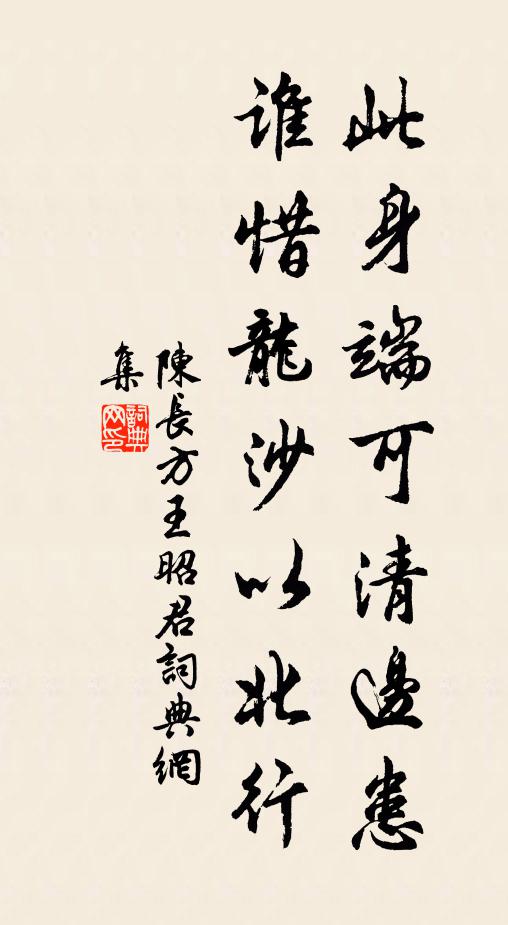 此身端可清邊患
誰惜龍沙以北行
陳長方王昭君詞典網
集
詞典网印